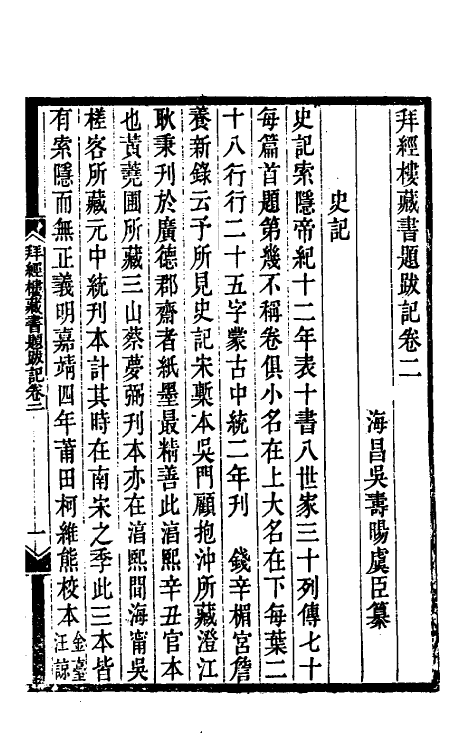 拜經樓藏書題跋記卷二
海昌吳壽暘虞臣纂
史記
史記索隱帝紀十二年表十書八世家三十列傳七十
每篇首題第幾不稱卷俱小名在上大名在下每葉二
十八行行二十五字蒙古中統二年刊　錢辛楣宮詹
養新錄云予所見史記宋槧本吳門顧抱沖所藏澄江
耿秉刊於廣德郡齋者紙墨最精善此淳熙辛丑官本
也黃蕘圃所藏三山蔡夢弼刊本亦在淳熙間海甯吳
槎客所藏元中統刊本計其時在南宋之季此三本皆
有索隱而無正義明嘉靖四年莆田柯維熊校本金臺汪諒
拜經樓藏書題跋記卷二
一